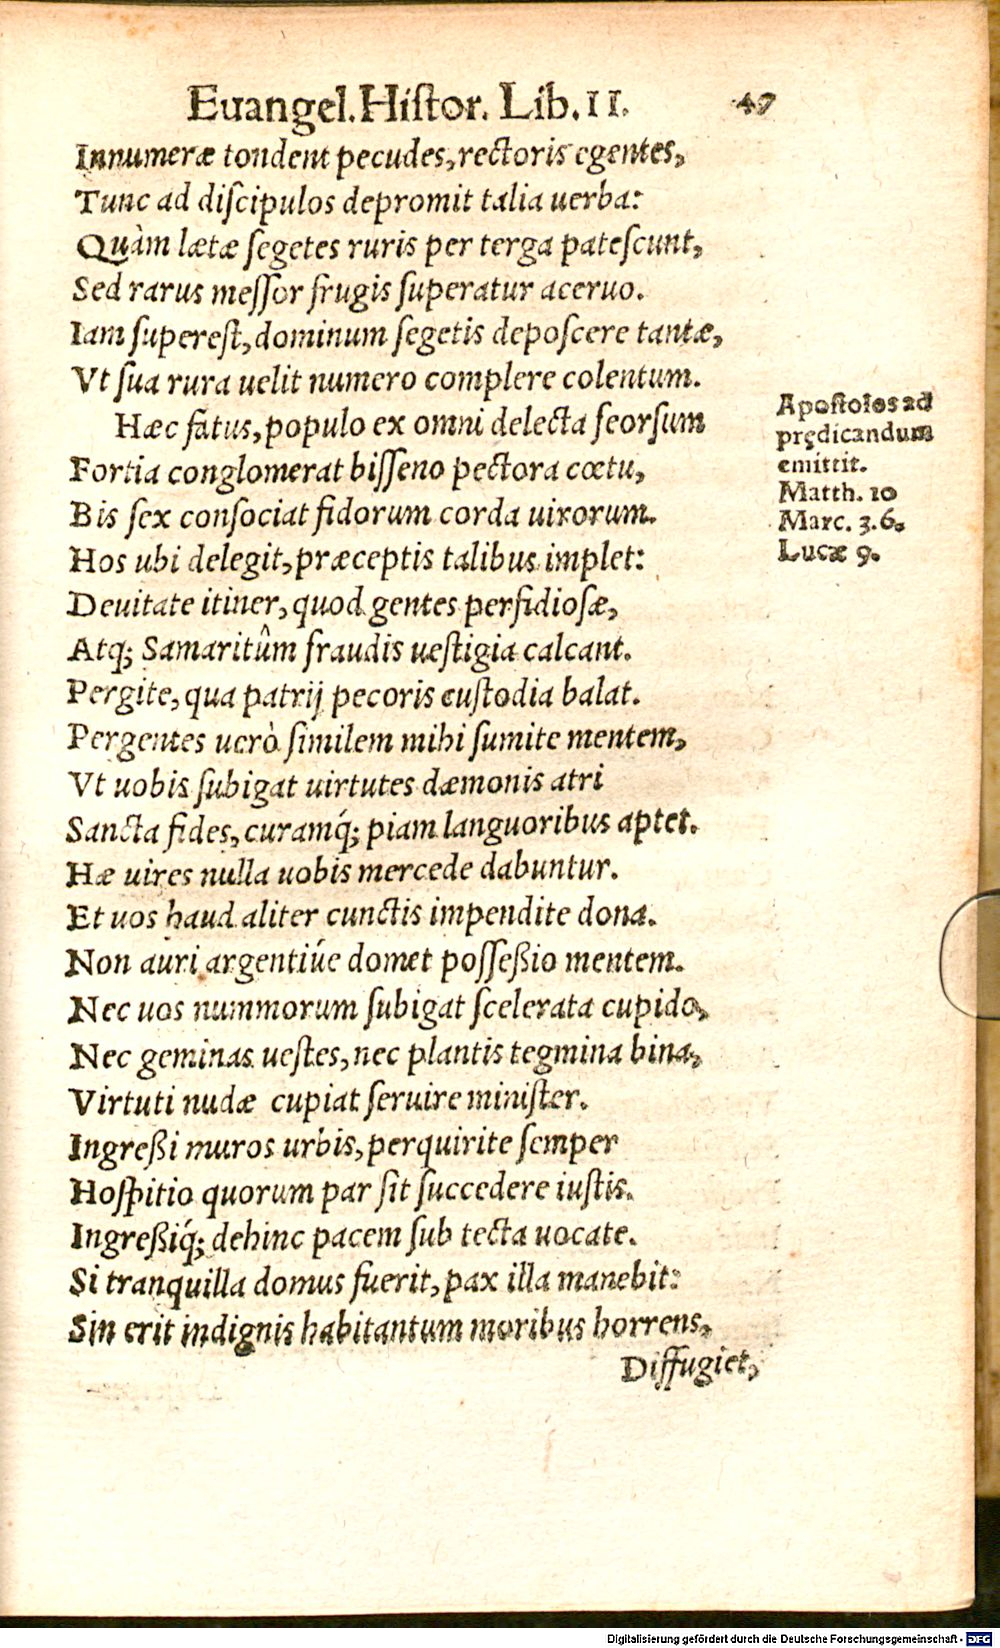 Euangel. Histor. Lib. II. 47
Innumeræ tondent pecudes, rectoris egentes,
Tunc ad discipulos depromit talia uerba:
Quàm lætæ segetes ruris per terga patescunt,
Sed rarus messor frugis superatur aceruo.
Iam superest, dominum segetis deposcere tantæ,
Vt sua rura uelit numero complere colentum.
Hæc fatus, populo ex omni delecta seorsum
Fortia conglomerat bisseno pectora cœtu,
Bis sex consociat fidorum corda uirorum.
Hos ubi delegit, præceptis talibus implet:
Deuitate itiner, quod gentes perfidiosæ,
Atq; Samaritûm fraudis uestigia calcant.
Pergite, qua patrij pecoris custodia balat.
Pergentes uerò similem mihi sumite mentem,
Vt uobis subigat uirtutes dæmonis atri
Sancta fides, curamq́; piam languoribus aptet.
Hæ uires nulla uobis mercede dabuntur.
Et uos haud aliter cunctis impendite dona.
Non auri argentiúe domet posseßio mentem.
Nec uos nummorum subigat scelerata cupido,
Nec geminas uestes, nec plantis tegmina bina,
Virtuti nudæ cupiat seruire minister.
Ingreßi muros urbis, perquirite semper
Hospitio quorum par sit succedere iustis.
Ingreßiq́; dehinc pacem sub tecta uocate.
Si tranquilla domus fuerit, pax illa manebit:
Sin erit indignis habitantum moribus horrens,
Diffugiet,
Apostolos ad
prędicandum
emittit.
Matth. 10
Marc. 3.6.
Lucæ 9.
Digitalisierung gefördert durch die Deutsche Forschungsgemeinschaft - DFG